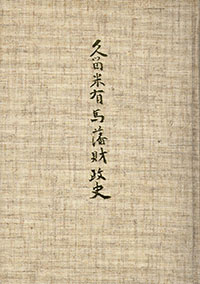 久留米有馬藩財政史